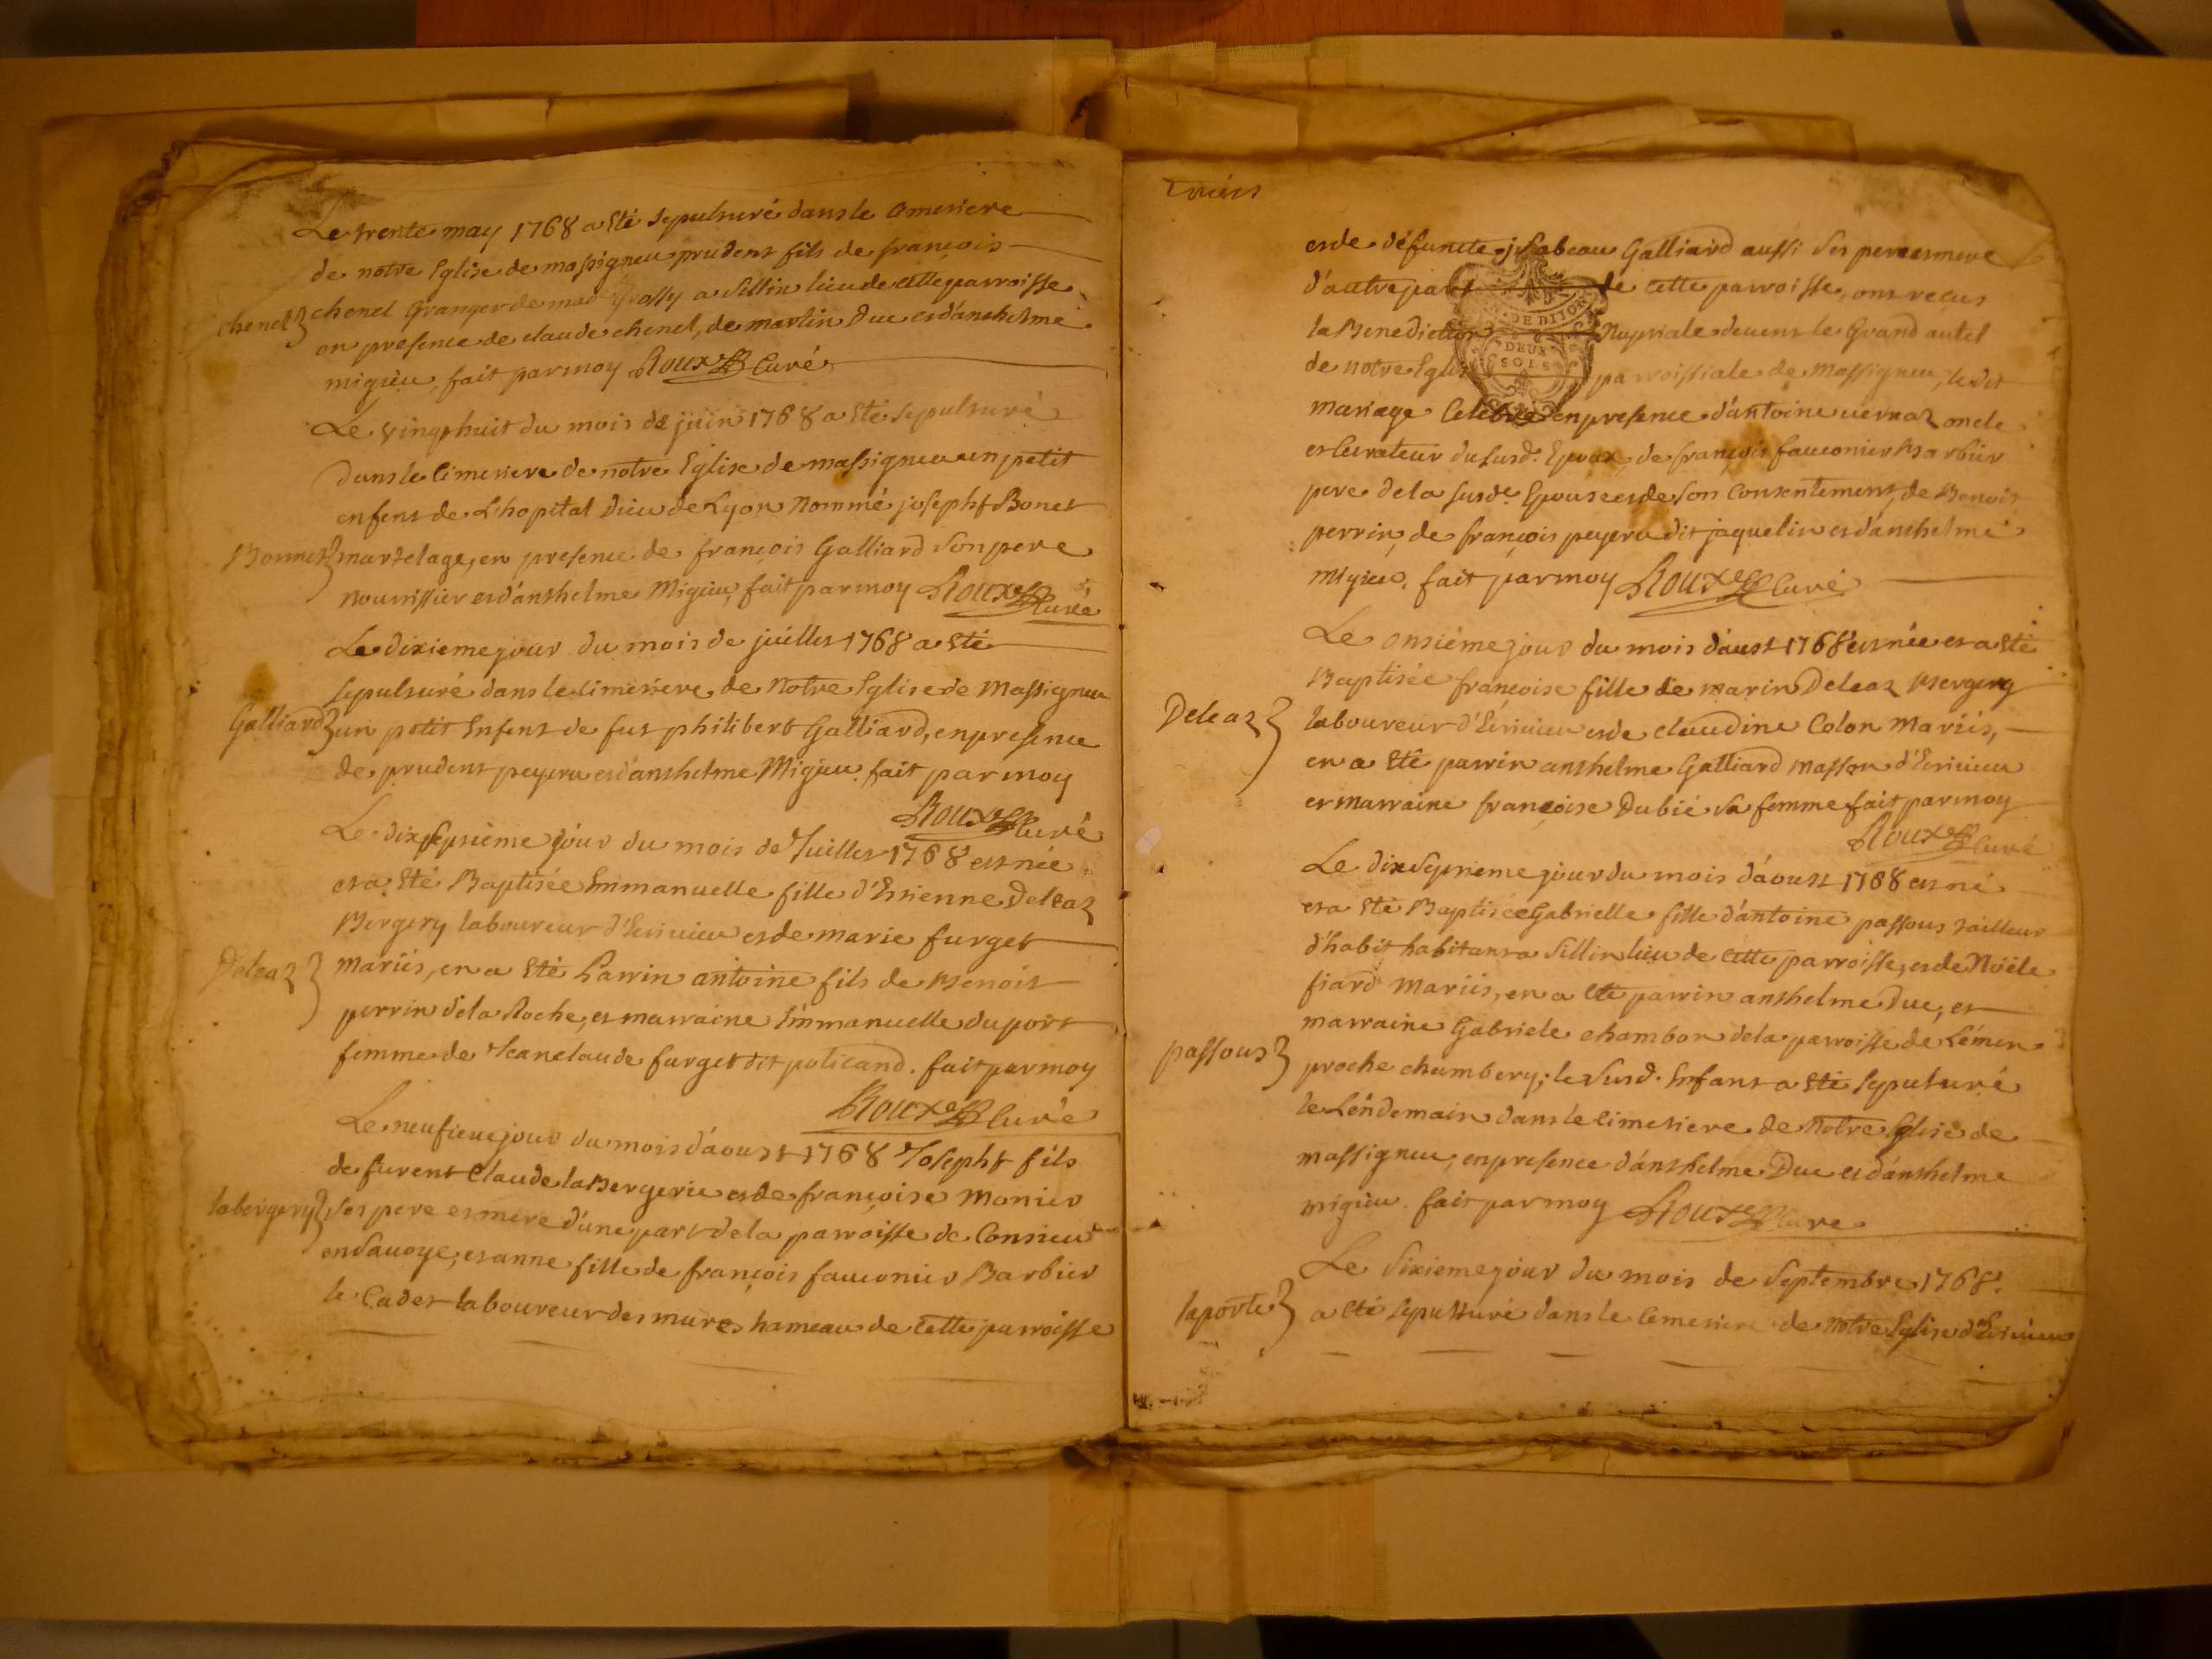 Le trente may 1768 a Eté sepulturé dans le Cimetiere
de notre Eglise de massigneu prudent fils de françois
chenel
chenel Granger de mad Grossy a Sillin lieu de cette parroisse
en presence de claude chenel, de martin Duc et d'anthelme
migieu, fait par moy Roux Curé
Le vingthuit du mois de juin 1768 a Eté sepulturé
dans le Cimetiere de notre Eglise de massigneu un petit
enfent de L'hopital Dieu de Lyon Nommé josepht Bonet
Bonnet
martelage, en presence de françois Galliard son pere
nourrissier et d'anthelme Migieu, fait par moy Roux Curé
Le dixieme jour du mois de juillet 1768 a Eté
sepulturé dans le Cimetiere de Notre Eglise de Massigneu
Galliard
un petit Enfent de fut philibert Galliard, en presence
de prudent peyeru et d'anthelme Migieu fait par moy
Roux Curé
Le dixseptième jour du mois de Juillet 1768 est née
et a Eté Baptisée Emmanuelle fille d'Etienne Deleaz
Bergery laboureur d'Ecrivieu et de marie furget
Deleaz
mariés, en a Eté Parrin antoine fils de Benoit
perrin de la Roche, et marraine Emmanuelle duport
femme de Jean claude furget dit policand. fait par moy
Roux Curé
Le neufieme jour du mois d'aoust 1768 Josepht fils
de furent Claude la Bergerie et de françoise Monier
labergery
ses pere et mere d'une part de la parroisse de Consieu
en Savoye, et anne fille de françois fauconier Barbier
le Cadet laboureur des mures hameau de Cette parroisse
et de défuncte jsabeau Galliard aussi ses pere et mere
d'autre part de cette parroisse, ont recus
la Benediction Nuptiale devent le Grand autel
de notre Eglise parroissiale de Massigneu, le dit
mariage Celebré en presence d'antoine vernaz oncle
et Curateur du susd. Epoux, de françois fauconier Barbier
pere de la susde Epouse et de son Consentement, de Benoit
perrin, de françois peyeru dit jaquelin et d'anthelme
Migieu, fait par moy Roux Curé
DE DIJON
DEUX
SOLS
Le onsiéme jour du mois d'aust 1768 est née et a Eté
Baptisée françoise fille de marin Deleaz Bergery
Deleaz
laboureur d'Ecrivieu et de claudine Colon Mariés,
en a Eté parrin anthelme Galliard masson d'Ecrivieu
et marraine françoise Dubié sa femme fait par moy
Roux Curé
Le dix septieme jour du mois d'aoust 1768 est né
et a Eté Baptisée Gabrielle fille d'antoine passout tailleur
d'habit habitant a Sillin lieu de Cette parroisse, et de Noële
fiard Mariés, en a Eté parrin anthelme Duc, et
marraine Gabriele chambon de la parroisse de Lémen
passout
proche chambery; le susd. Enfant a Eté sepulturé
le Lendemain dans le Cimetiere de Notre Eglise de
massigneu, en presence d'anthelme Duc et d'anthelme
migieu. fait par moy Roux Curé
Le sixieme jour du mois de septembre 1768.
laporte
a Eté sepulturé dans le Cemetiere de Notre Eglise d'Ecrivieu